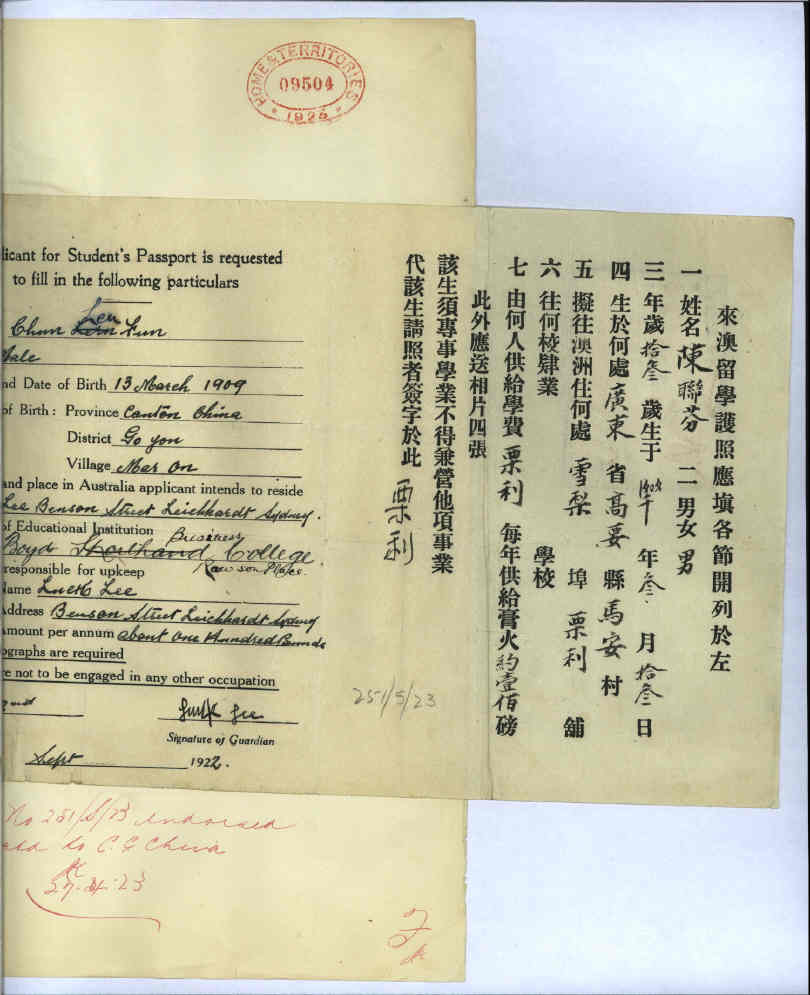 HOME & TERRITORIES
09504
1925
licant for Student's Passport is requested
to fill in the following particulars
Chun Leu Fun
ale
nd Date of Birth 13 March 1909
of Birth : Province Canton China
District Go yon
Village Mar on
and place in Australia applicant intends to reside
Lee Benson Street Leichhardt Sydney.
of Educational Institution Business
Boyd Shorthand College
Rawson Place
responsible for upkeep
Name Luck Lee
Address Benson Street Leichhardt Sydney
Amount per annum about One Hundred Pounds
ographs are required
re not to be engaged in any other occupation
Luck Lee
Signature of Guardian
Sept 1922.
251/S/23
No 251/S/23 endorsed
and to C. G China
27.4.23
來澳留學護照應填各節開列於左
一 姓名 陳聯芬 二 男女 男
三 年歲 拾叁 歲生于 年 叁 月 拾叁 日
四 生於何處 廣東 省 高要 縣 馬安 村
五 擬往澳洲住何處 雪梨 埠 栗利 舖
六 往何校肄業 學校
七 由何人供給學費 栗利 每年供給膏火 約壹佰 磅
此外應送相片四張
該生須專事學業不得兼營他項事業
代該生請照者簽字於此 栗利